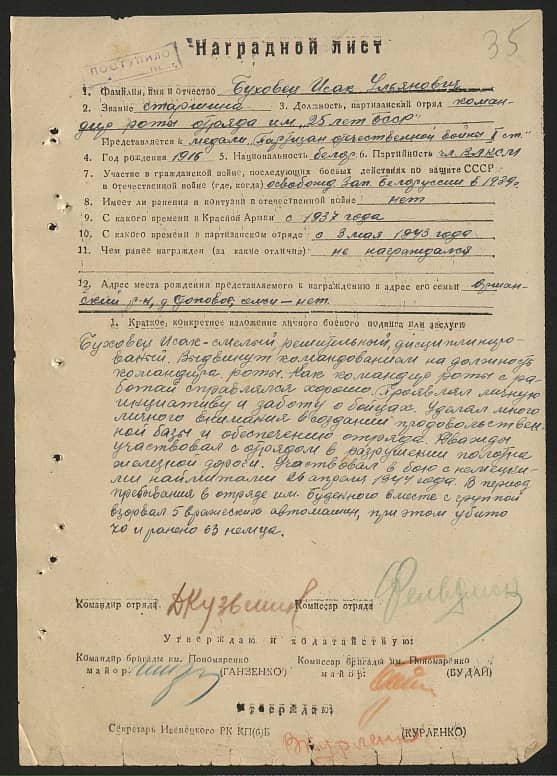 35
ПОСТУПИЛО
Наградной лист
1. Фамилия, имя и отчество Буховец Исак Ульянович
2. Звание старшина 3. Должность, партизанский отряд коман-
дир роты отряда им. "25 лет БССР"
Представляется к медали "Партизан отечественной войны I ст."
4. Год рождения 1916 5. Национальность белор. 6. Партийность чл. ВЛКСМ
7. Участие в гражданской войне, последующих боевых действиях по защите СССР
в отечественной войне (где, когда) освобожд. Зап. Белоруссии в 1939 г.
8. Имеет ли ранения и контузии в отечественной войне нет
9. С какого времени в Красной Армии с 1937 года
10. С какого времени в партизанском отряде с 3 мая 1943 года
11. Чем ранее награжден (за какие отличия) не награждался
12. Адрес места рождения представляемого к награждению и адрес его семьи Оршан-
ский р-н, д. семьи - нет.
1. Краткое, конкретное изложение личного боевого подвига или заслуг
Буховец Исак - смелый решительный, дисциплиниро-
ванный. Выдвинут командованием на должность
командира роты. Как командир роты с ра-
ботай справлялся хорошо. Проявлял личную
инициативу и заботу о бойцах. Уделал много
личного внимания в создании продовольствен-
ной базы и обеспечению отряда. Дважды
участвовал с отрядом в разрушении полотна
железной дороги. Участвовал в бою с немецки-
ми наймитами 26 апреля 1944 года. В период
пребывания в отряде им. Буденного вместе с группой
взорвал 5 вражеских автомашин, при этом убито
40 и ранено 63 немца.
Командир отряда ДКузьмин Комиссар отряда
Утверждаю и ходатайствую:
Командир бригады им. Пономаренко Комиссар бригады им. Пономаренко
майор: (ГАНЗЕНКО) майор: (БУДАЙ)
Утверждаю:
Секретарь Ивенецкого РК КП(б)Б Журленко (КУРЛЕНКО)